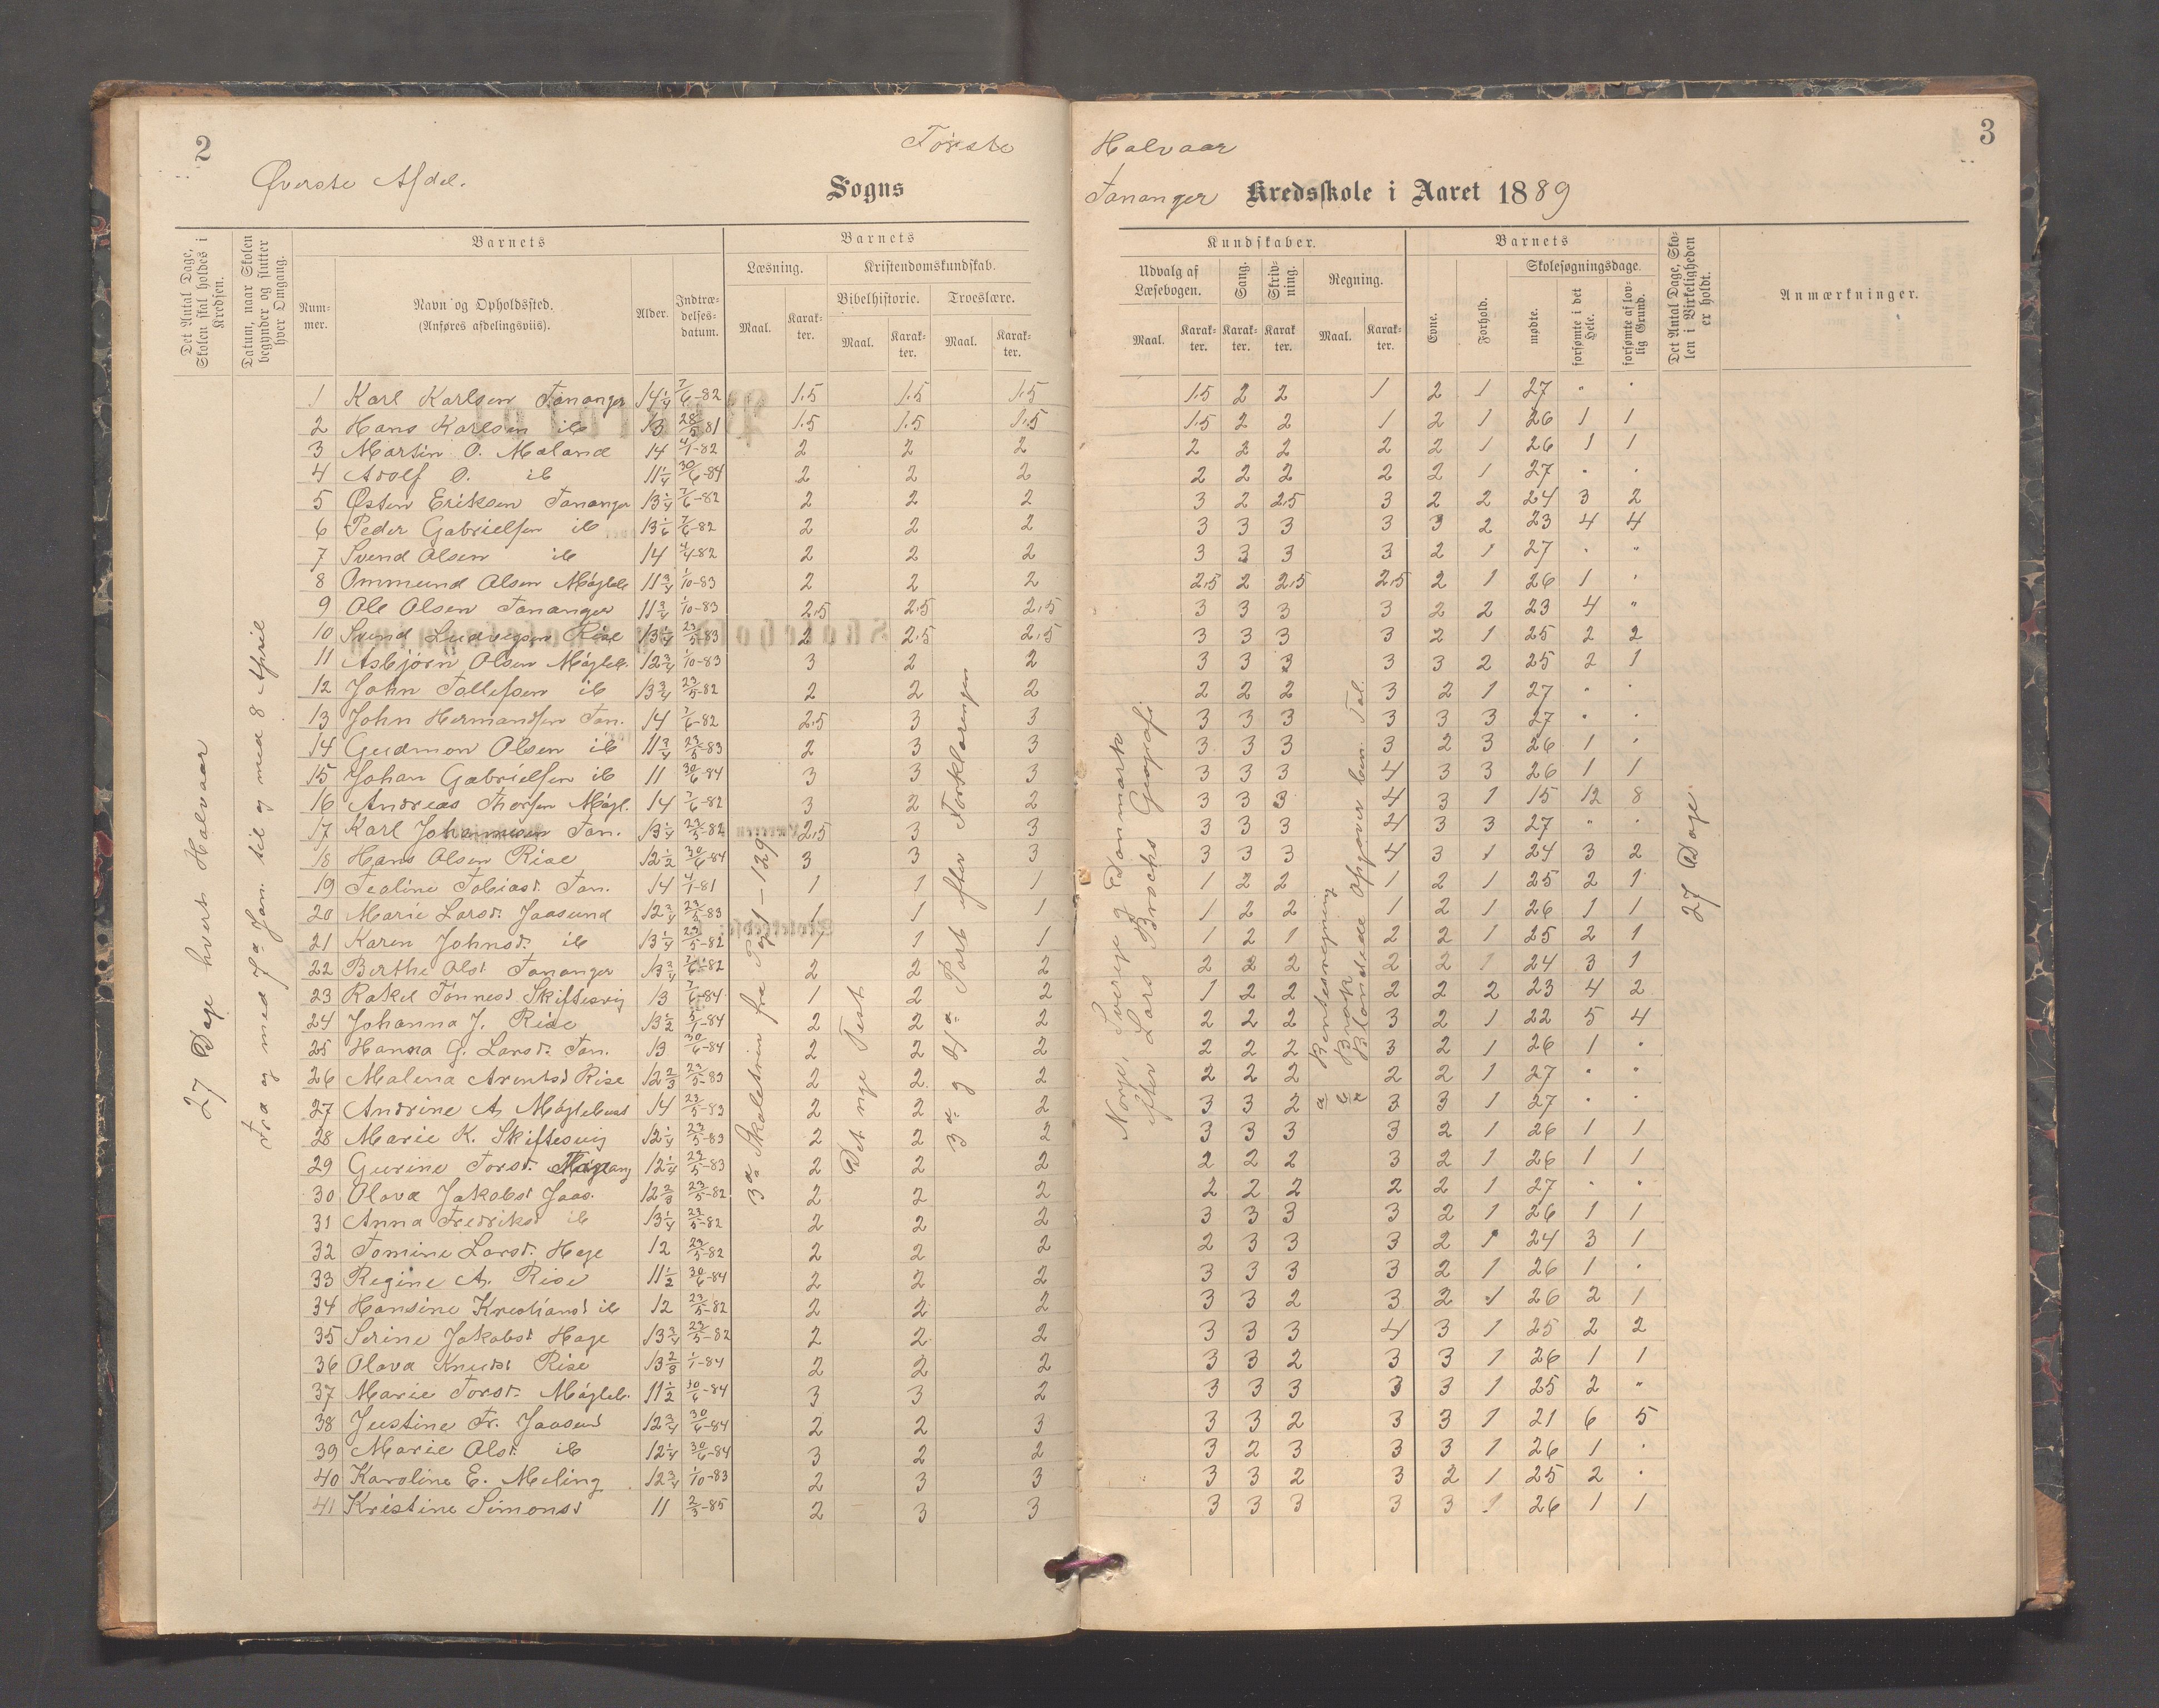 2
Første
Øverste Afdel.
Sogns
Det Antal Dage, Skolen skal holdes i Kredsen.
Datum, naar Skolen begynder og slutter hver Omgang.
Barnets
Barnets
Læsning.
Kristendomskundskab.
Bibelhistorie.
Troeslære.
Num-mer.
Navn og Opholdssted.
(Anføres afdelingsviis).
Alder.
Indtræ-delses-datum.
Maal.
Karak-ter.
Maal.
Karak-ter.
Maal.
Karak-ter.
27 Dage hvert Halvaar
Fra og med 7de Jan. til og med 8 April
3de Skoletrin fra Pag 1 – 129
Det nye Test
3de og 4de Part efter Forklaringen
1 Karl Karlsen Tananger 14 1/4 7/6-82 1.5 1.5 1.5
2 Hans Karlsen ib 13 28/5 81 1.5 1.5 1.5
3 Martin O. Maland 14 4/1-82 2 2 2
4 Adolf O. ib 11 1/4 30/6-84 2 2 2
5 Østen Eriksen Tananger 13 1/4 7/6-82 2 2 2
6 Peder Gabrielsen ib 13 1/6 7/6-82 2 2 2
7 Svend Olsen ib 14 4/4-82 2 2 2
8 Ommund Olsen Møgleb 11 3/4 1/10-83 2 2 2
9 Ole Olsen Tananger 11 3/4 1/10-83 2,5 2,5 2,5
10 Svend Ludvigsen Risø 13 1/4 23/5-83 2 2,5 2,5
11 Asbjørn Olsen Møgleb. 12 3/4 1/10-83 3 2 2
12 John Tollefsen ib 13 3/4 23/5-82 2 2 2
13 John Hermandsen Tan. 14 7/6-82 2,5 3 3
14 Gudmon Olsen ib 11 3/4 23/5-83 2 3 3
15 Johan Gabrielsen ib 11 30/6-84 3 3 3
16 Andreas Thorsen Møgl. 14 7/6-82 3 2 2
17 Karl Johannesen Tan. 13 1/4 23/5-82 2,5 3 3
18 Hans Olsen Risø 12 1/2 30/6-84 3 3 3
19 Tealine Tobiasd. Tan. 14 4/1-81 1 1 1
20 Marie Larsd. Jaasund 12 3/4 23/5-83 1 1 1
21 Karen Johnsd. ib 13 1/4 23/5-82 1 1 1
22 Berthe Olsd. Tananger 13 3/4 7/6-82 2 2 2
23 Rakel Tønnesd Skiftesvig 13 7/6-84 1 2 2
24 Johanna J. Risø 13 1/2 5/1-84 2 2 2
25 Hanna G. Larsd. Tan. 13 30/6-84 2 2 2
26 Malena Arentsd Risø 12 2/3 23/5-83 2 2 2
27 Andrine A. Møglebust 14 23/5-83 2 2 2
28 Marie K. Skiftesvig 12 1/4 23/5-83 2 2 2
29 Gurine Torsd. 12 1/4 23/5-83 2 2 2
30 Olava Jakobsd Jaas. 12 2/3 23/5-82 2 2 2
31 Anna Fredriksd ib 13 1/4 23/5-82 2 2 2
32 Tomine Larsd. Hage 12 23/5-82 2 2 2
33 Regine A. Risø 11 1/2 30/6-84 2 2 2
34 Hansine Kristiansd ib 12 23/5-82 2 2 2
35 Serine Jakobsd Hage 13 3/4 23/5-82 2 2 2
36 Olava Knudsd Risø 13 2/3 1/1-84 2 2 2
37 Marie Torsd. Møgleb. 11 1/2 30/6-84 3 3 2
38 Justine Fr. Jaasund 12 3/4 30/6-84 2 2 3
39 Marie Olsd. ib 12 1/4 30/6-84 3 2 2
40 Karoline E. Meling 12 3/4 1/10-83 2 3 3
41 Kristine Simonsd 11 2/3-85 2 3 3
3
Halvaar
Tananger Kredsskole i Aaret 1889
Kundskaber.
Barnets
Udvalg af Læsebogen.
Sang.
Skriv-ning.
Regning.
Evne.
Forhold.
Skolesøgningsdage.
Det Antal Dage, Sko-len i Virkeligheden er holdt.
Anmærkninger.
Maal.
Karak-ter.
Karak-ter.
Karak-ter.
Maal.
Karak-ter.
mødte.
forsømte i det Hele.
forsømte af lov-lig Grund.
Norge, Sverige og Danmark
efter Lars Brochs Geografi
a Rentesregning
b Brøk
c Blandede Opgaver ben. Tal.
27 Dage.
1.5 2 2 1 2 1 27 " "
1.5 2 2 1 2 1 26 1 1
2 2 2 2 2 1 26 1 1
2 2 2 2 2 1 27 " "
3 2 2,5 3 2 2 24 3 2
3 3 3 3 3 2 23 4 4
3 3 3 3 2 1 27 " "
2,5 2 2,5 2,5 2 1 26 1 "
3 3 3 3 2 2 23 4 "
3 3 3 3 2 1 25 2 2
3 3 3 3 3 2 25 2 1
2 2 2 3 2 1 27 " "
3 3 3 3 3 3 27 " "
3 3 3 3 2 3 26 1 "
3 3 3 4 3 3 26 1 1
3 3 3 4 3 1 15 12 8
3 3 3 4 3 3 27 " "
3 3 3 4 3 1 24 3 2
1 2 2 1 2 1 25 2 1
1 2 2 1 2 1 26 1 1
1 2 1 2 2 1 25 2 1
2 2 2 2 2 1 24 3 1
1 2 2 2 2 2 23 4 2
2 2 2 3 2 1 22 5 4
2 2 2 3 2 1 26 1 "
2 2 2 2 2 1 27 " "
3 3 2 3 3 1 27 " "
3 3 3 3 2 1 26 1 1
2 2 2 3 2 1 26 1 1
2 2 2 2 2 1 27 " "
3 3 3 3 2 1 26 1 1
2 3 3 3 2 1 24 3 1
3 3 3 3 2 1 26 1 "
3 3 2 3 2 1 26 2 1
3 3 3 4 3 1 25 2 2
3 3 2 3 3 1 26 1 1
3 3 3 3 3 1 25 2 "
3 3 2 3 3 1 21 6 5
3 2 3 3 3 1 26 1 "
3 3 2 3 2 1 25 2 "
3 3 3 3 3 1 26 1 1